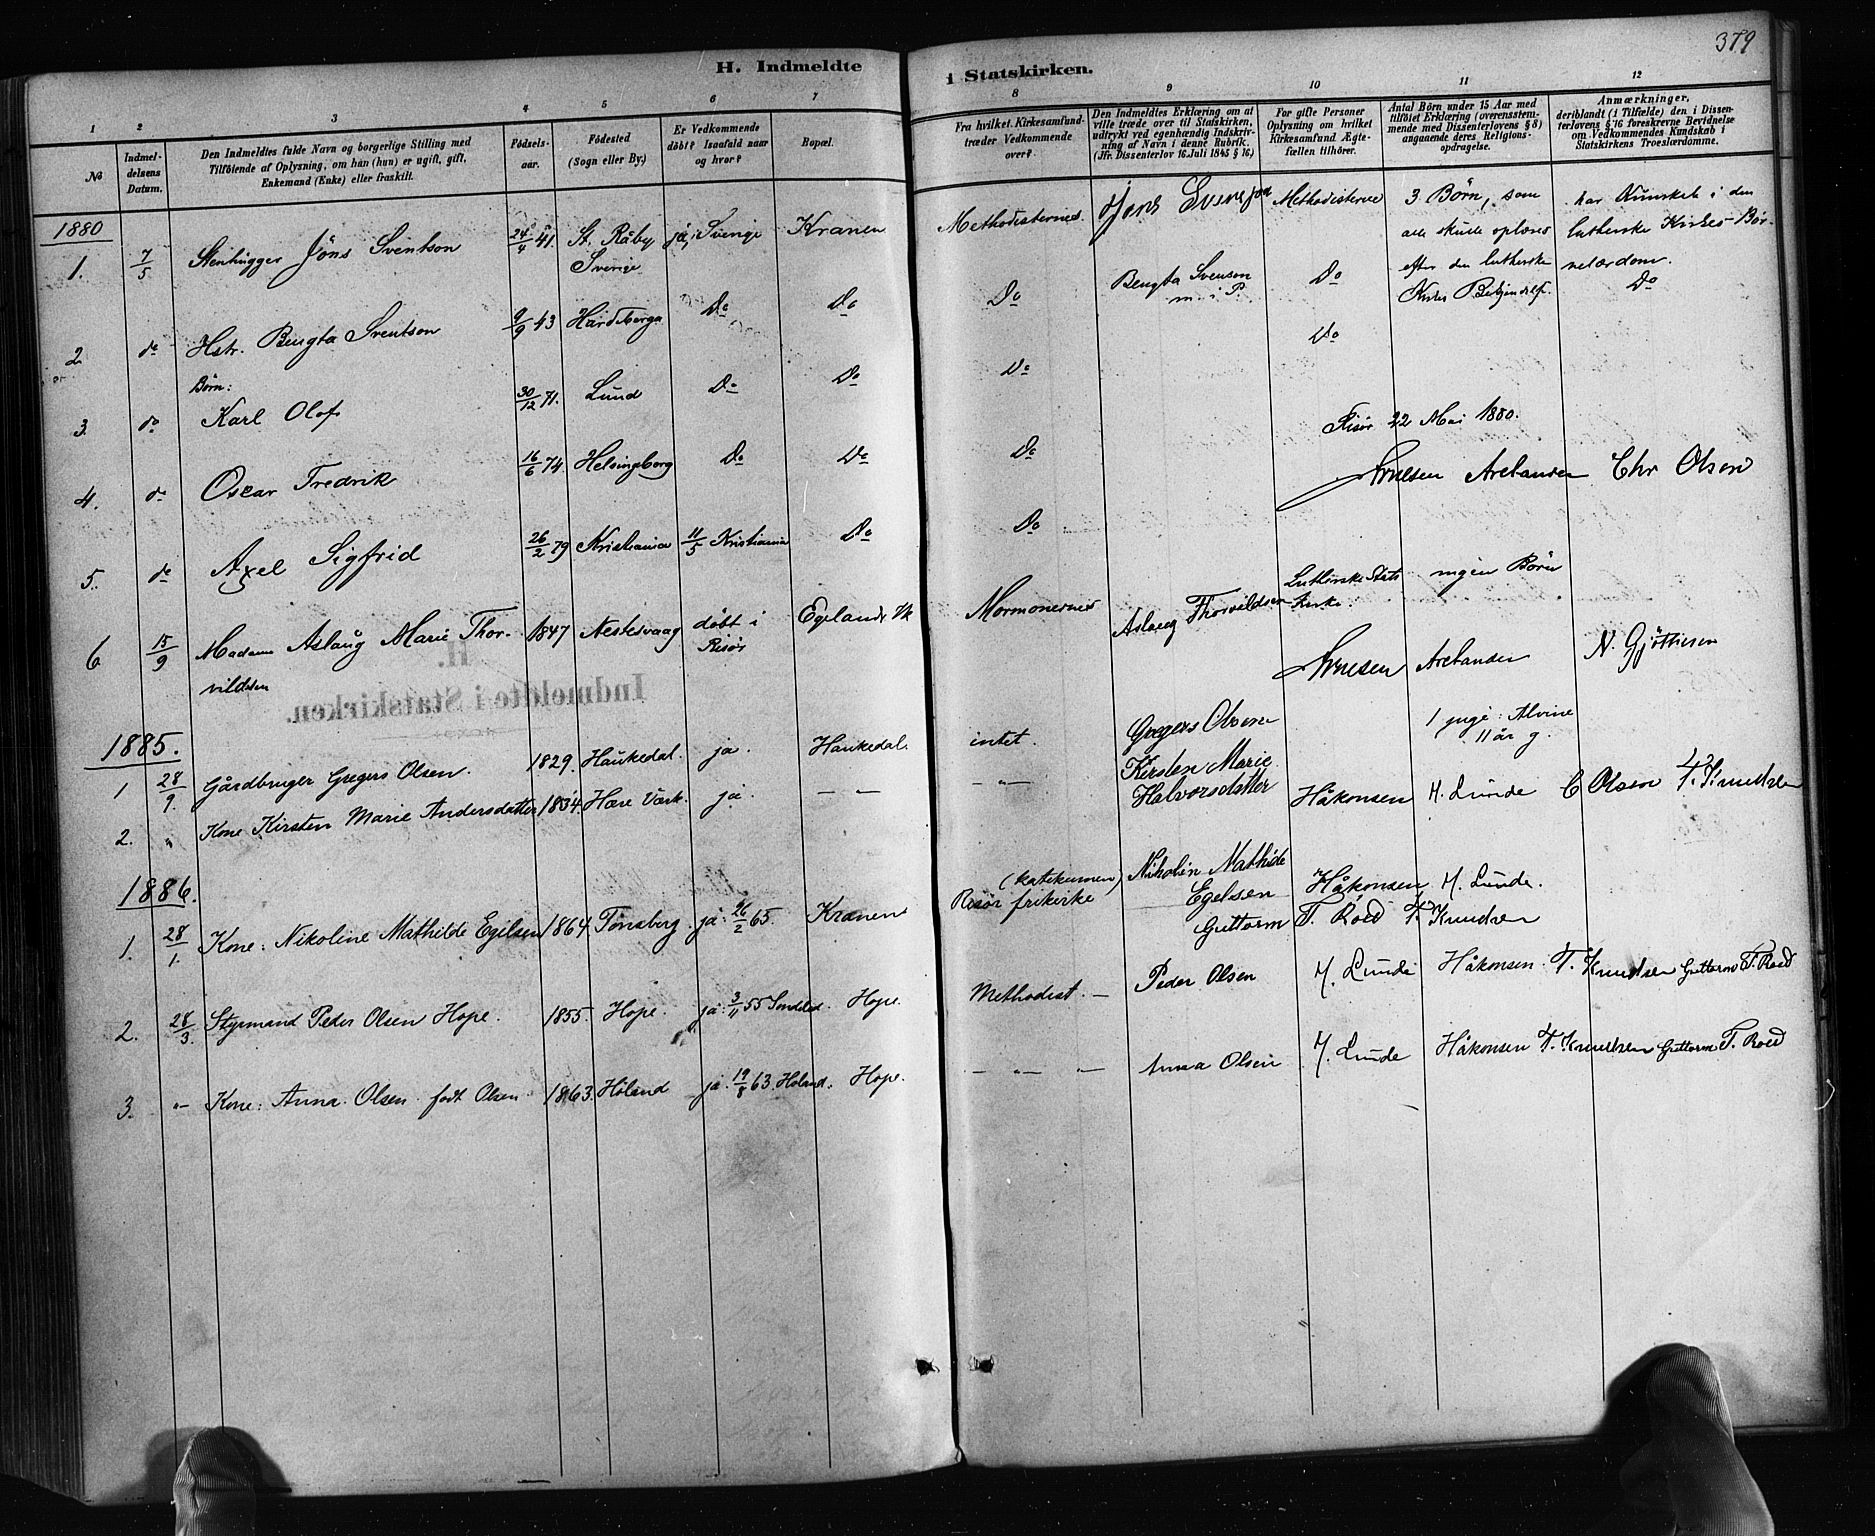 379
H. Indmeldte i Statskirken.
1 2 3 4 5 6 7 8 9 10 11 12
No
Indmel-
delsens
Datum.
Den Indmeldtes fulde Navn og borgerlige Stilling med
Tilföiende af Oplysning, om han (hun) er ugift, gift,
Enkemand (Enke) eller fraskilt.
Födsels-
aar.
Födested
(Sogn eller By.)
Er Vedkommende
döbt? Isaafald naar
og hvor?
Bopæl.
Fra hvilket Kirkesamfund-
træder Vedkommende
over?
Den Indmeldtes Erklæring om at
ville træde over til Statskirken,
udtrykt ved egenhændig Indskriv-
ning af Navn i denne Rubrik.
(Jfr. Dissenterlov 16 Juli 1845 § 16.)
For gifte Personer
Oplysning om hvilket
Kirkesamfund Ægte-
fællen tilhörer.
Antal Börn under 15 Aar med
tilföiet Erklæring (overensstem-
mende med Dissenterlovens § 8)
angaaende deres Religions-
opdragelse.
Anmærkninger,
deriblandt (i Tilfælde) den i Dissen-
terlovens § 16 foreskrevne Bevidnelse
om Vedkommendes Kundskab i
Statskirkens Troeslærdomme.
1880
1. 7/5 Stenhugger Jöns Sventson 24/4 41. St. Råby Sverige ja, i Sverige Kranen Methodisternes Jöns Svensson Methodisterne 3 Börn, som
alle skulle oplæres
efter den lutherske
Kirkes Bekjendelse.
har Kunskab i den
lutherske Kirkes Bör-
nelærdom.
2 do Hstr. Bengta Sventson 9/9 43 Hardeberga Do Do Do Bengta Svenson
m. i P. Do Do
Börn:
3. do Karl Olof 30/12 71. Lund Do Do Do Do
Risör 22 Mai 1880.
4. do Oscar Fredrik 16/6 74. Helsingborg Do Do Do
Arnesen Arelander Chr Olsen
5. do Axel Sigfrid 26/2 79 Kristiania 11/5 Kristiania Do Do
6 15/9 Madam Aslaug Marie Thor-
vildsen 1847 Nestesvaag döbt i
Risör Egelands Vk Mormonernes Aslaug Thorvildsen Lutherske Stats
Kirke. ingen Börn
Arnesen Arelander N. Gjöttiesen
H.
Indmeldte i Statskirken.
1885.
1 28/9. Gårdbruger Gregers Olsen. 1829. Haukedal. ja. Haukedal. intet. Gregers Olsen 1 pige: Alvine
11 år g.
2. " Kone Kirsten Marie Andersdatter 1834. Næs Værk. ja. — — — " — Kirsten Marie
Halvorsdatter Håkonsen H. Lunde C Olsen T. Knudsen
1886.
1. 28/1. Kone: Nikoline Mathilde Egilsen 1864. Tönsberg. ja: 26/2 65. Kranen (katekumen)
Risör frikirke Nikolin Mathide
Egelsen Håkonsen H. Lunde.
Guttorm T. Röed T. Knudsen
2. 28/3. Styrmand Peder Olsen Hope. 1855. Hope. ja: 3/11 55 Söndeled Hope. Methodist. — Peder Olsen H. Lunde Håkonsen T. Knudsen Guttorm T. Roed
3. " Kone: Anna Olsen födt Olsen 1863. Höland ja: 19/8 63. Höland. Hope. — " — Anna Olsen H. Lunde Håkonsen T. Knudsen Guttorm T. Roed